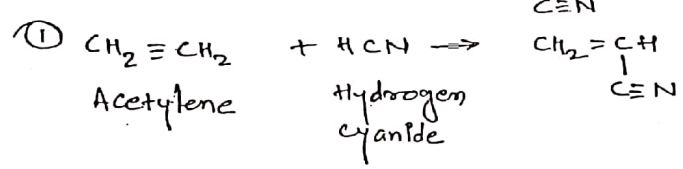 C≡N
① CH₂ ≡ CH₂ + HCN → CH₂ = CH
|
Acetylene Hydrogen C≡N
cyanide